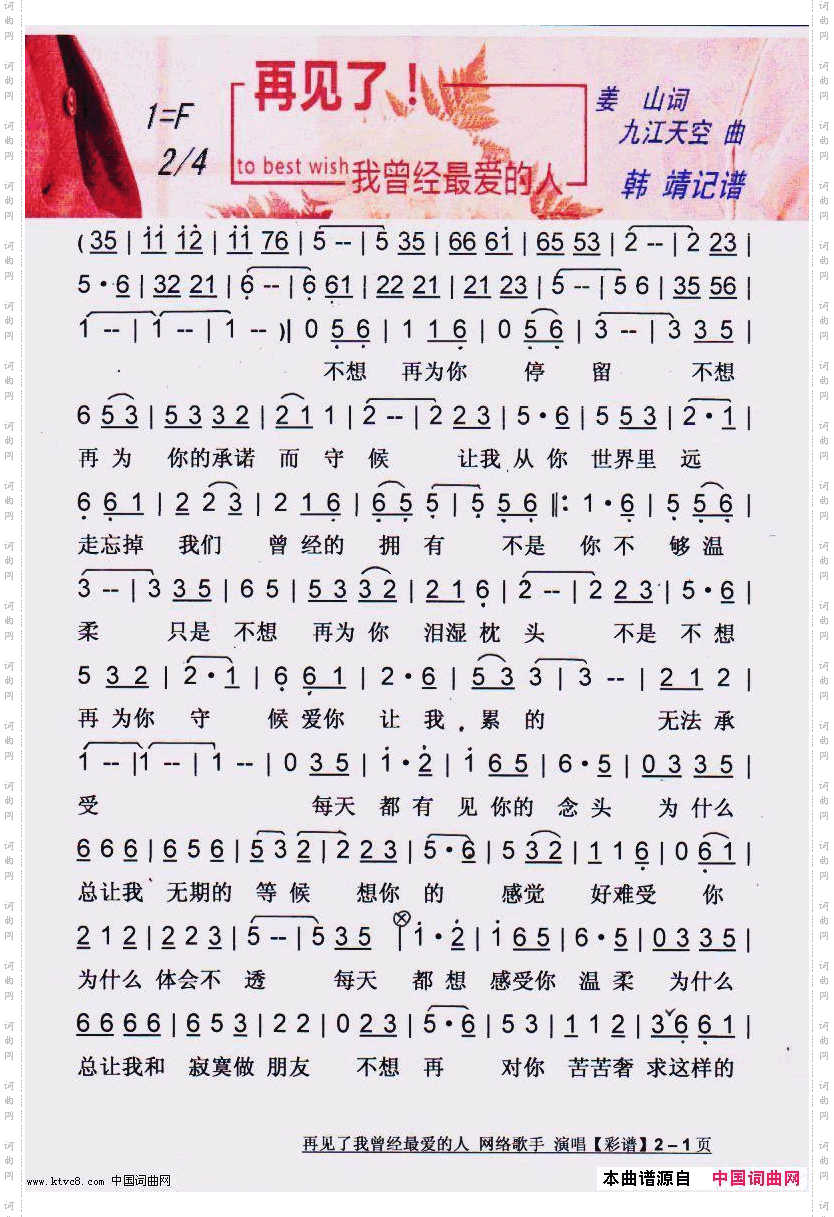 再见了！
1=F
2/4
to best wish 我曾经最爱的人
姜 山词
九江天空 曲
韩 靖记谱
( 35 | 11 12 | 11 76 | 5 -- | 5 35 | 66 61 | 65 53 | 2 -- | 2 23 |
5 · 6 | 32 21 | 6 -- | 6 61 | 22 21 | 21 23 | 5 -- | 5 6 | 35 56 |
1 -- | 1 -- | 1 -- )| 0 56 | 1 16 | 0 56 | 3 -- | 3 35 |
不想 再为你 停 留 不想
6 53 | 53 32 | 21 1 | 2 -- | 2 23 | 5 · 6 | 5 53 | 2 · 1 |
再 为 你的承诺 而 守 候 让我 从 你 世界里 远
6 61 | 2 23 | 2 16 | 65 5 | 5 56 ‖: 1 · 6 | 5 56 |
走忘掉 我们 曾 经的 拥 有 不是 你 不 够温
3 -- | 3 35 | 6 5 | 53 32 | 21 6 | 2 -- | 2 23 | 5 · 6 |
柔 只是 不想 再为 你 泪湿 枕 头 不是 不 想
5 32 | 2 · 1 | 6 61 | 2 · 6 | 53 3 | 3 -- | 21 2 |
再 为你 守 候 爱你 让 我 累 的 无法 承
1 -- | 1 -- | 1 -- | 0 35 | 1 · 2 | 1 65 | 6 · 5 | 03 35 |
受 每天 都 有 见 你的 念 头 为 什么
6 66 | 65 6 | 53 2 | 2 23 | 5 · 6 | 5 32 | 11 6 | 0 61 |
总让我 无期的 等 候 想你 的 感觉 好难受 你
2 12 | 2 23 | 5 -- | 5 35 | 1 · 2 | 1 65 | 6 · 5 | 03 35 |
为什么 体会不 透 每天 都 想 感受你 温 柔 为什么
66 66 | 65 3 | 2 2 | 0 23 | 5 · 6 | 5 3 | 11 2 | 36 61 |
总让我和 寂寞做 朋友 不想 再 对你 苦苦奢 求这样的
再见了我曾经最爱的人 网络歌手 演唱【彩谱】2－1页
www.ktvc8.com 中国词曲网
本曲谱源自 中国词曲网